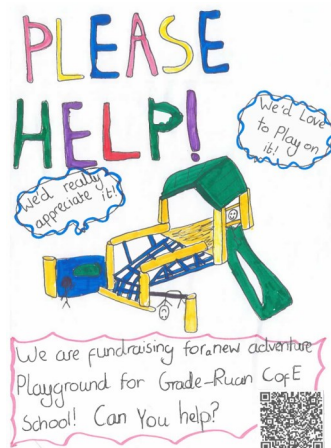 PLEASE
HELP!
We'd Love
to Play on
it!
We'd really
appreciate it!
We are fundraising for a new adventure
Playground for Grade-Ruan CofE
School! Can You help?